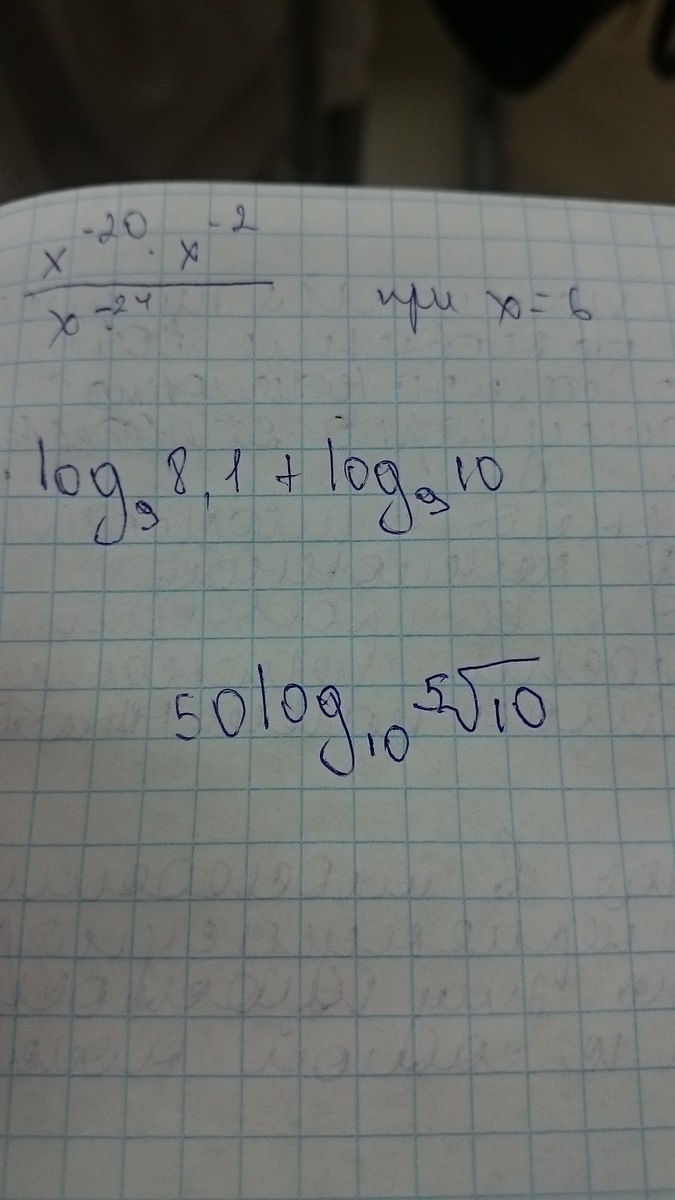 x⁻²⁰ · x⁻²
x⁻²⁴ при x = 6
log₉ 8,1 + log₉ 10
50 log₁₀ ⁵√10